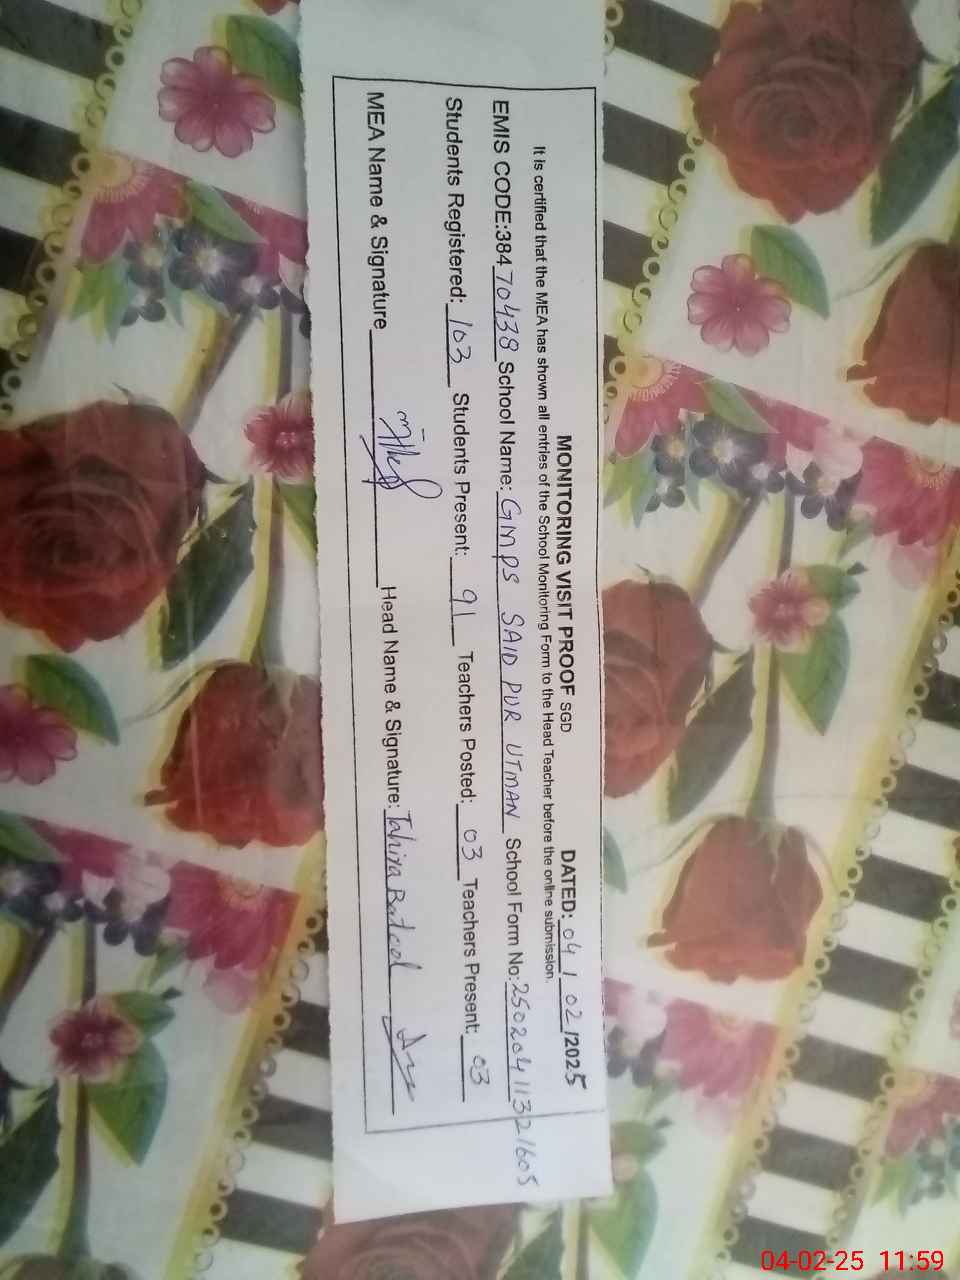 MONITORING VISIT PROOF SGD DATED: 04 / 02 /2025
It is certified that the MEA has shown all entries of the School Monitoring Form to the Head Teacher before the online submission.
EMIS CODE:38470438 School Name: GMPS SAID PUR UTMAN School Form No:25020411321605
Students Registered: 103 Students Present: 91 Teachers Posted: 03 Teachers Present: 03
MEA Name & Signature Head Name & Signature: Tahira Batool
04-02-25 11:59